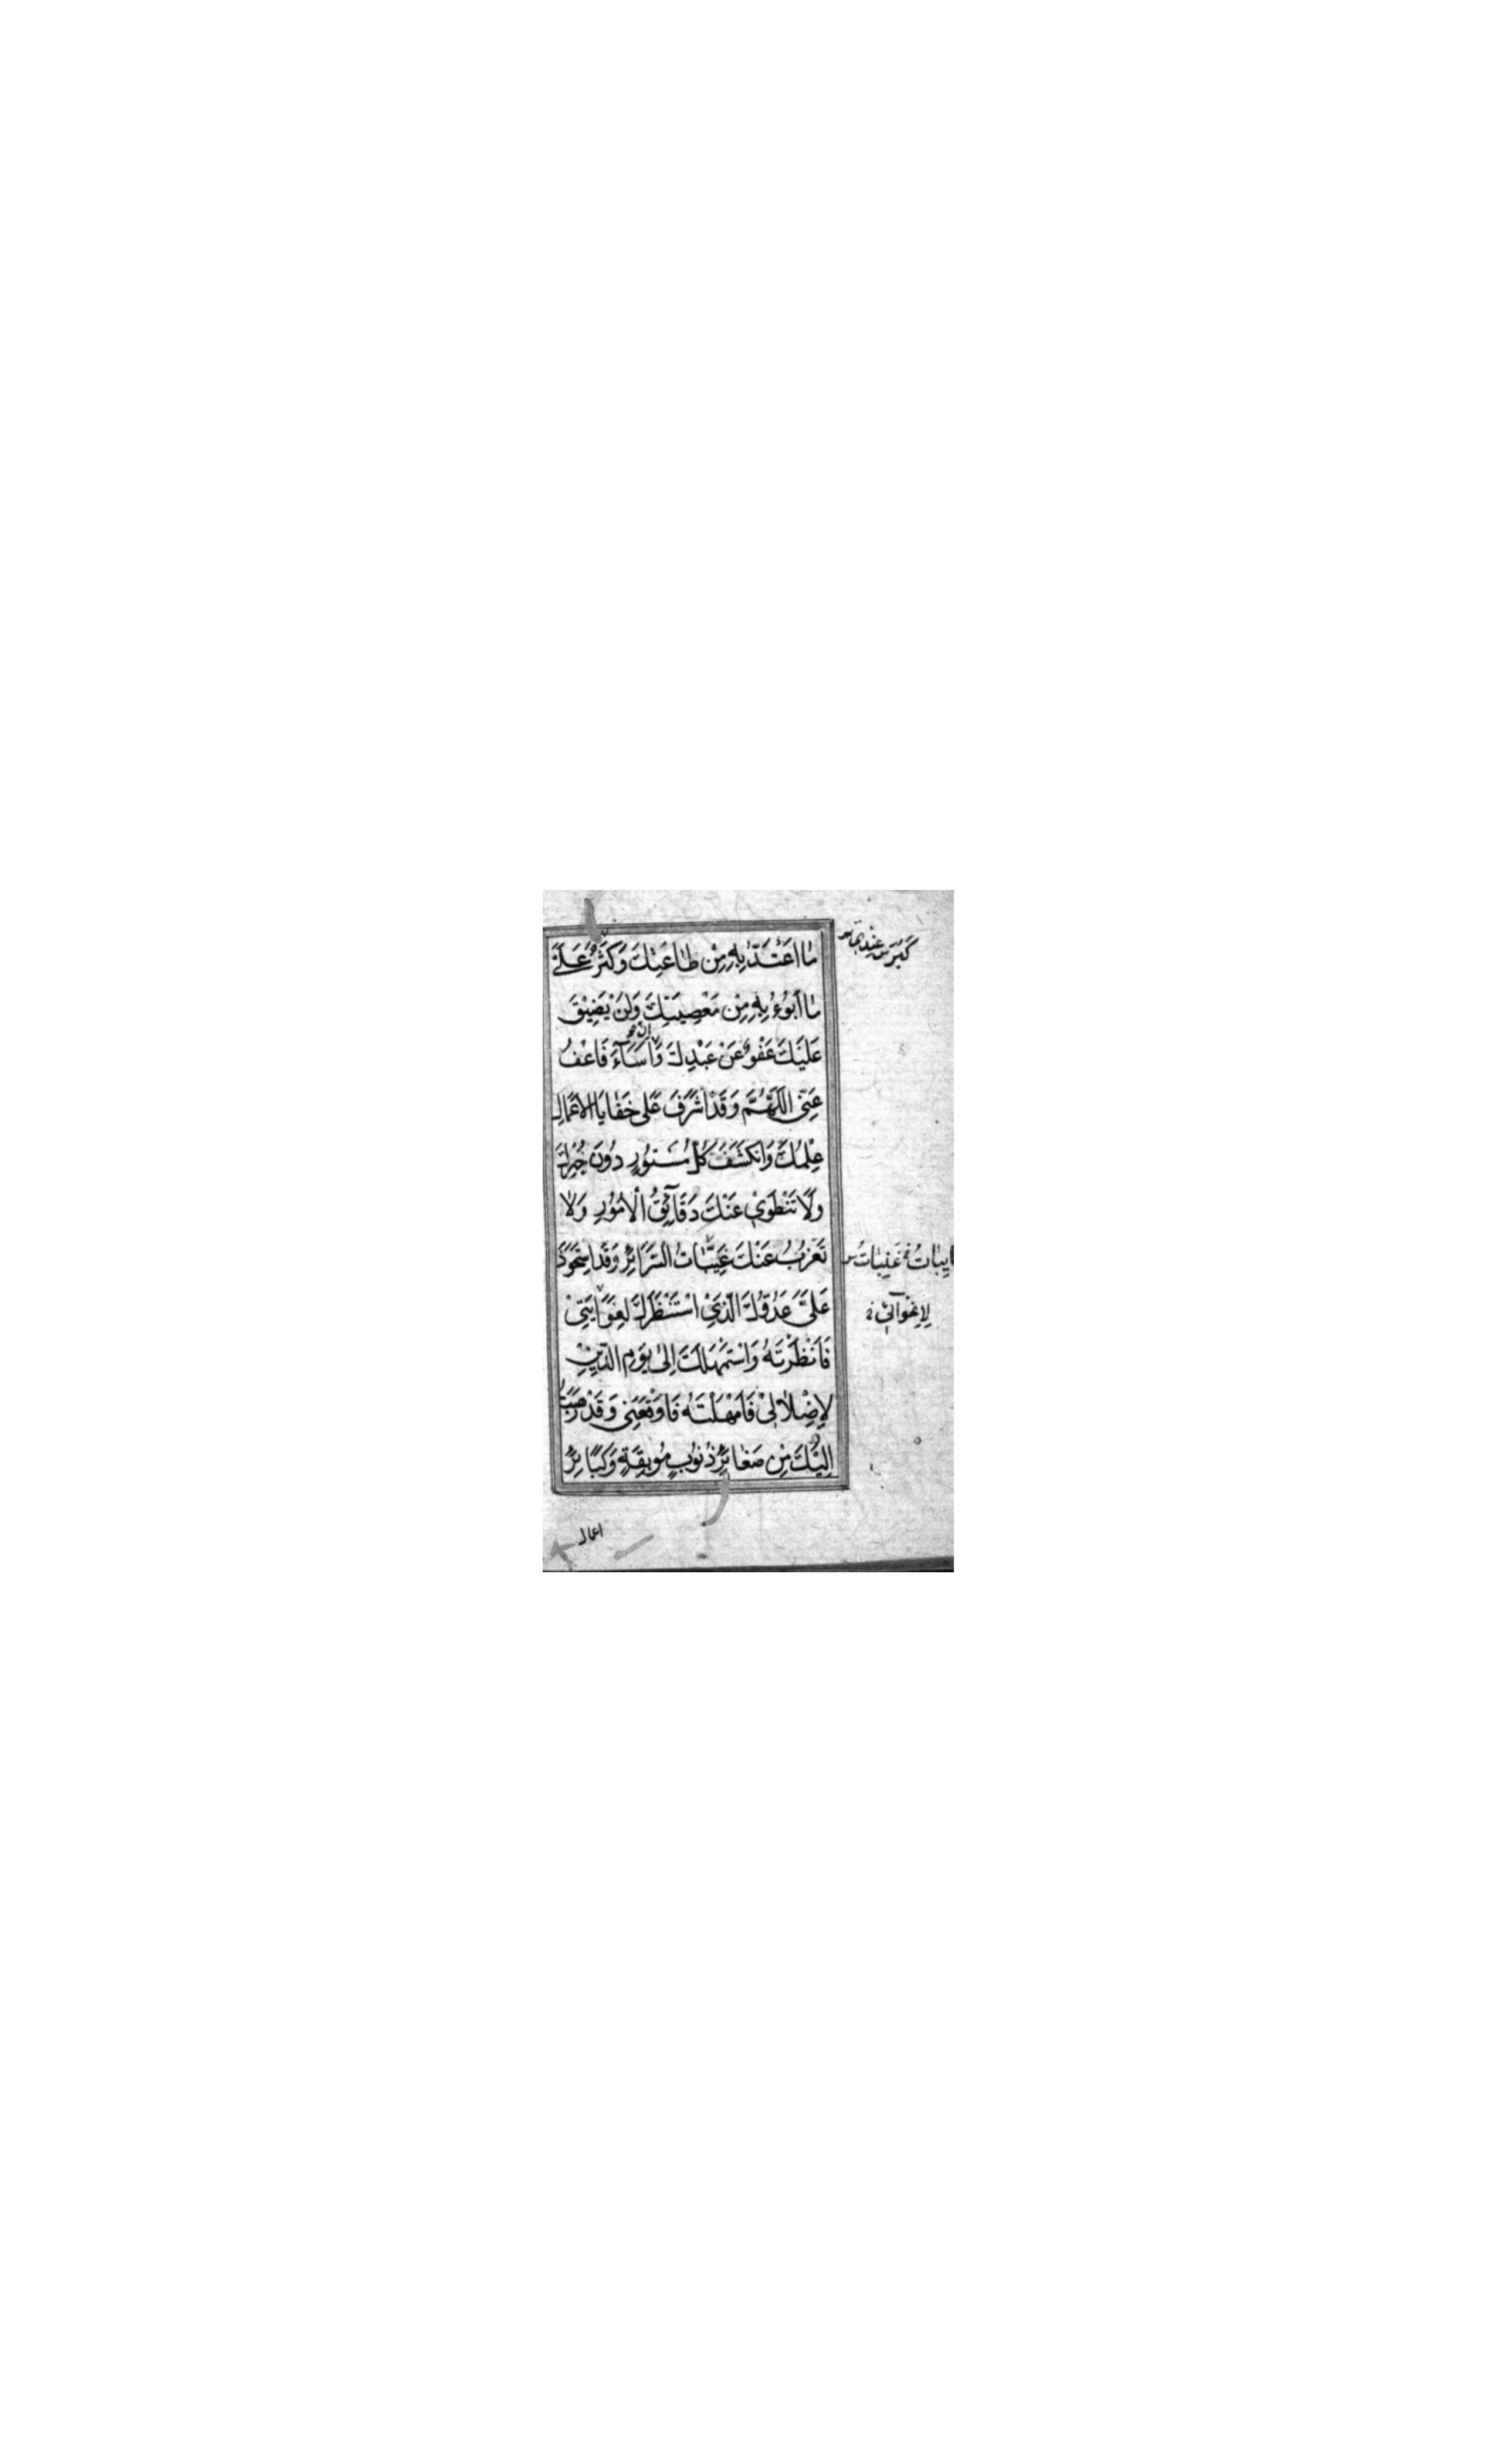 مٰا اَعْتَدُّ بِهِ مِنْ طٰاعَتِكَ وَكَثُرَ عَلَيَّ
مٰا اَبُوءُ بِهِ مِنْ مَعْصِيَتِكَ وَلَنْ يَضِيْقَ
عَلَيْكَ عَفْوٌ عَنْ عَبْدِكَ وَاِنْ اَسٰآءَ فَاعْفُ
عَنِّى اَللّٰهُمَّ وَقَدْ اَشْرَفَ عَلٰى خَفٰايَا الْاَعْمٰالِ
عِلْمُكَ وَانْكَشَفَ كُلُّ مَسْتُورٍ دُونَ خُبْرِكَ
وَلَا تَنْطَوِي عَنْكَ دَقٰآئِقُ الْاُمُورِ وَلٰا
تَعْزُبُ عَنْكَ غَيِّبٰاتُ السَّرٰائِرِ وَقَدِ اسْتَحْوَذَ
عَلَيَّ عَدُوُّكَ الَّذِي اسْتَنْظَرَكَ لِغِوٰايَتِيْ
فَاَنْظَرْتَهُ وَاسْتَمْهَلَكَ اِلٰى يَوْمِ الدِّيْنِ
لِاِضْلٰالِيْ فَاَمْهَلْتَهُ فَاَوْقَعَنِى وَقَدْ هَرَبْتُ
اِلَيْكَ مِنْ صَغٰائِرِ ذُنُوبٍ مُوبِقَةٍ وَكَبٰائِرِ
اعمال
كَبُرَ عِنْدِي
غَيْبٰاتُ
لِاِغْوٰآئِي